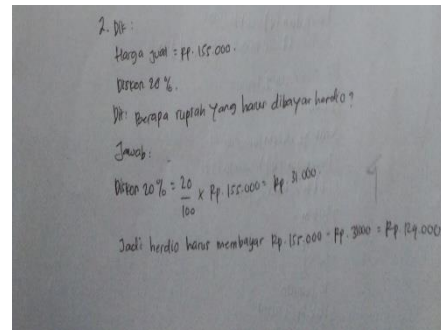 2. Dik :
Harga jual = Rp. 155.000.
Diskon 20 %.
Dit : Berapa rupiah yang harus dibayar herdio ?
Jawab :
Diskon 20 % = 20/100 x Rp. 155.000 = Rp. 31.000.
Jadi herdio harus membayar Rp. 155.000 - Rp. 31000 = Rp. 124.000